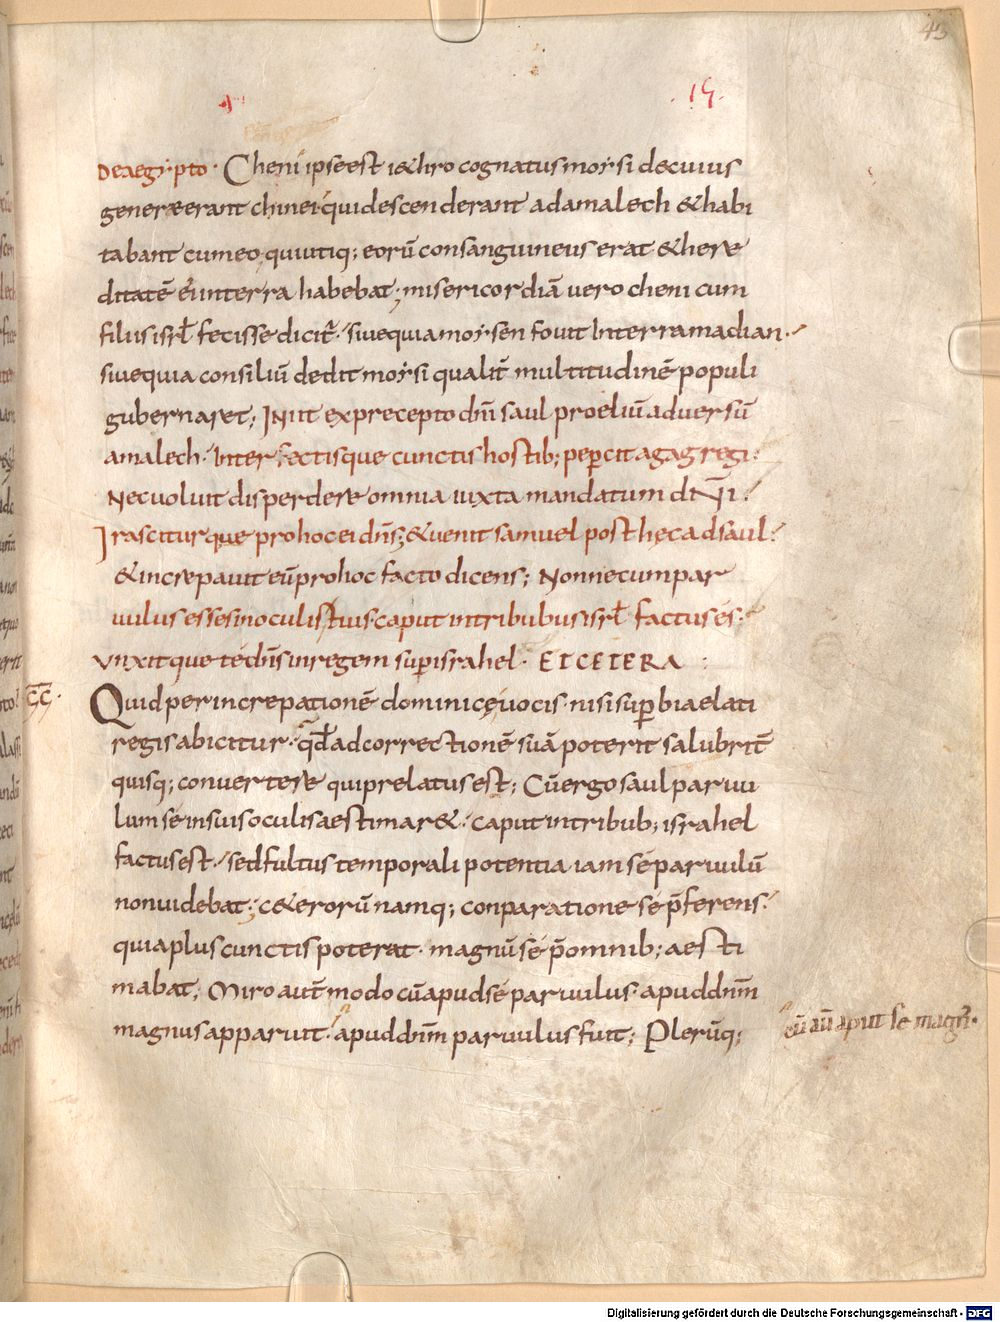 45
15.
De aegypto. Cheni ipse est i&hro cognatus moysi de cuius
genere erant chinei qui descenderant ad amalech & habi
tabant cum eo quiutiq; eorū consanguineus erat & here
ditatē ei in terra habebat; misericordiā vero cheni cum
filiis isrl fecisse dicit̃. siue quia moysen fouit In terra madian.
siue quia consiliū dedit moysi qualit̃ multitudinē populi
gubernaret; Iniit ex precepto dn̄i saul proeliū aduersū
amalech. Interfectisque cunctis hostib; pepcit agag regi.
Nec uoluit disperdere omnia iuxta mandatum dN̄i.
Irasciturque pro hoc ei dn̄s; & uenit samuel post hęc ad saul.
& increpauit eū pro hoc facto dicens; Nonne cum par
uulus esses in oculis tuis. caput in tribubus isrl factus es.
Vnxitque te dn̄s in regem sup israhel. ETCETERA
C̄C̄.
Quid per increpationē dominicę uocis. nisi supbia elati
regis abicitur. qđ ad correctionē suā poterit salubrit̃
quisq; conuertere qui prelatus est; Cū ergo saul paruu
lum sé in suis oculis aestimar&. caput in tribub; israhel
factus est. sed fultus temporali potentia iam sé paruulū
non uidebat; c&erorū namq; conparatione sé p̄ferens.
quia plus cunctis poterat. magnū sé p̄ omnib; aesti
mabat; Miro aut̄ modo cū apud sé paruulus. apud dn̄m
magnus apparuit. apud dn̄m paruulus fuit; Plerūq;
cū aū aput se magn.
Digitalisierung gefördert durch die Deutsche Forschungsgemeinschaft - DFG